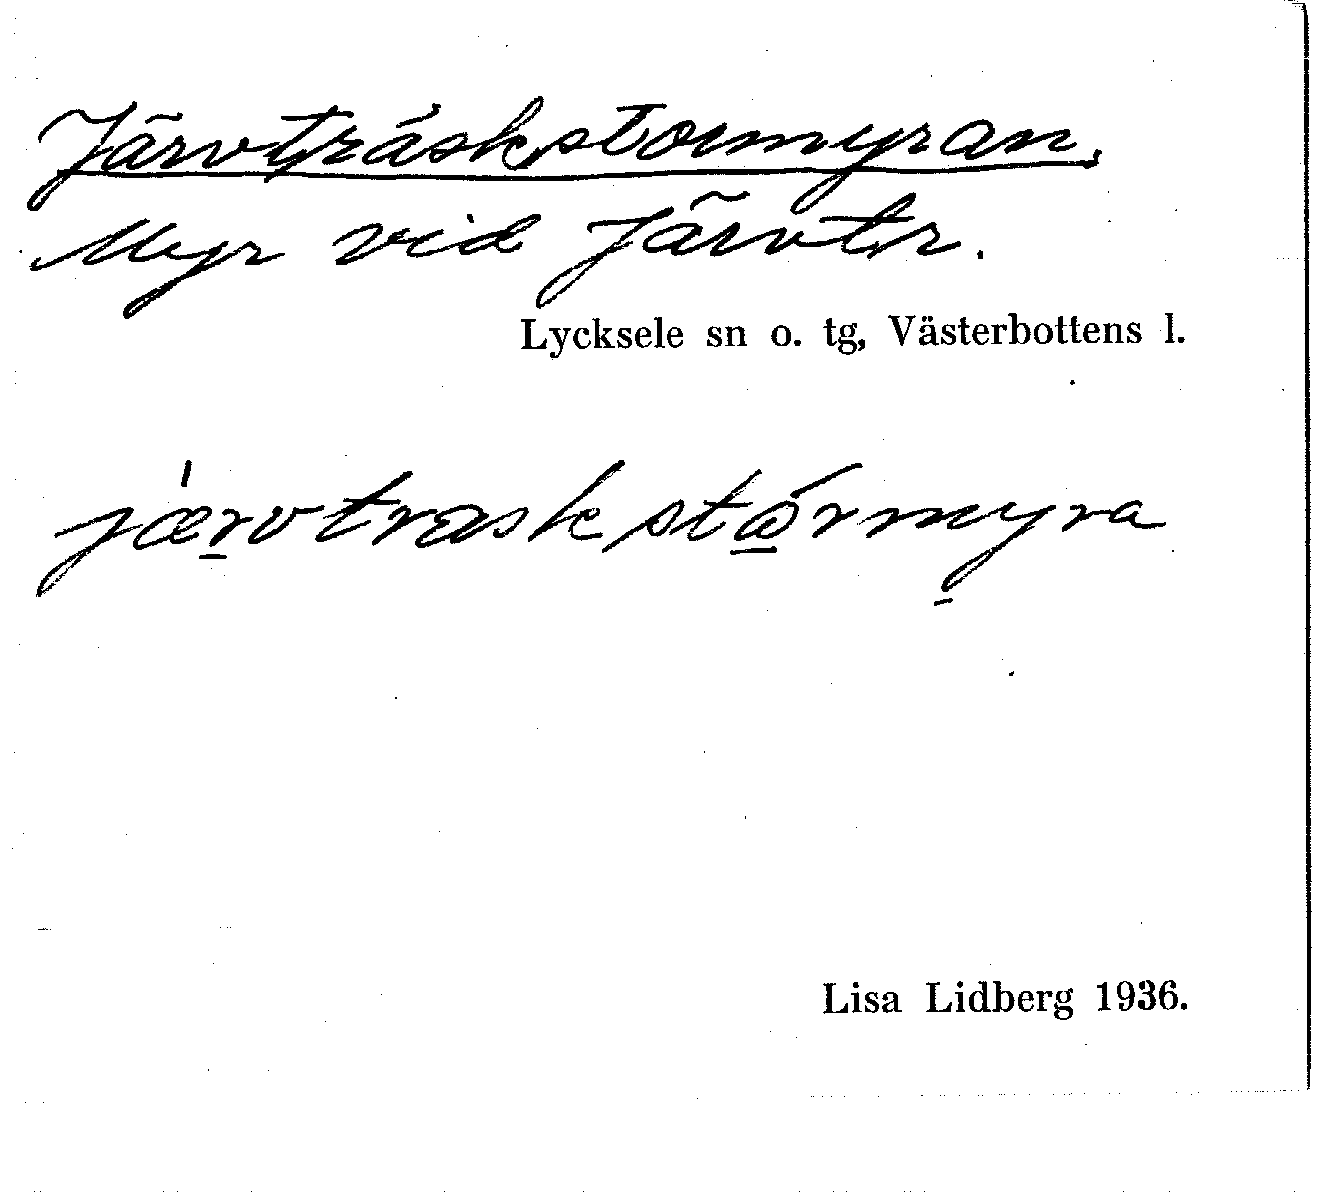 Järvträskstormyran.
Myr vid Järvtr.
Lycksele sn o. tg, Västerbottens l.
jærvtraskstórmyra
Lisa Lidberg 1936.